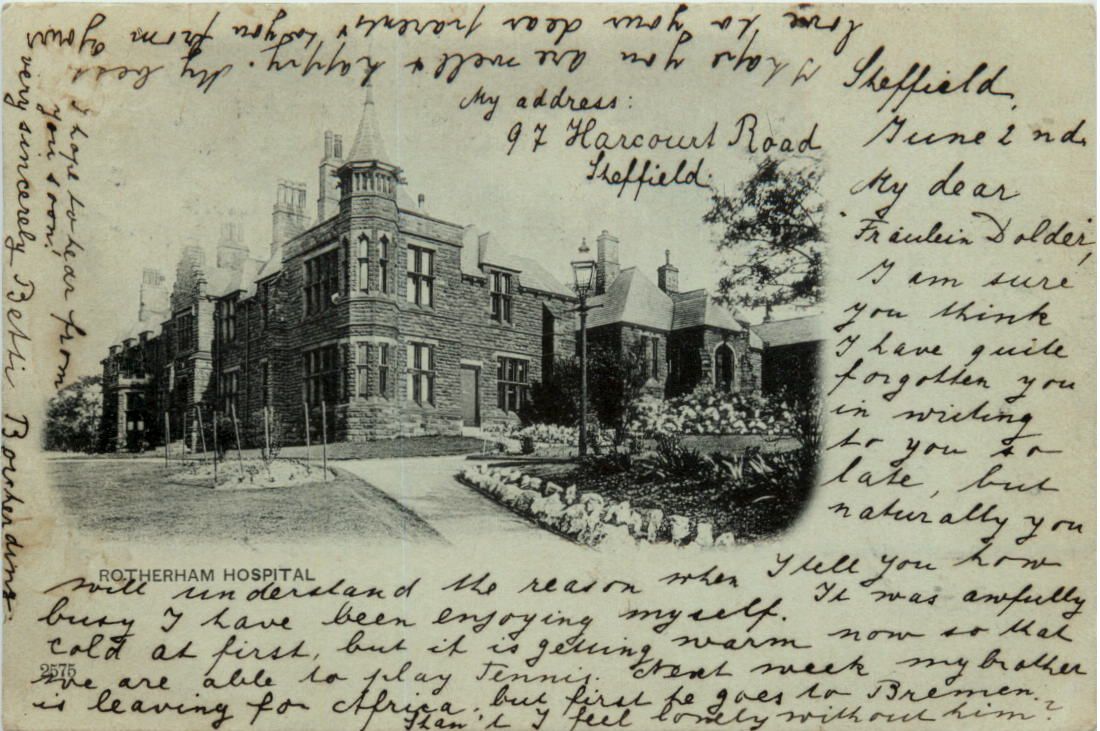 Sheffield,
June 2nd.
My dear
Fräulein Dolder,
I am sure
you think
I have quite
forgotten you
in writing
to you so
late, but
naturally you
will understand the reason when I tell you how
busy I have been enjoying myself. It was awfully
cold at first, but it is getting warm now so that
we are able to play Tennis. Next week my brother
is leaving for Africa, but first he goes to Bremen.
Shan't I feel lonely without him?
I hope you are well & happy. My best
love to your dear parents & to you from yours
very sincerely Betti
I hope to hear from
you soon.
My address:
97 Harcourt Road
Sheffield.
ROTHERHAM HOSPITAL
2575